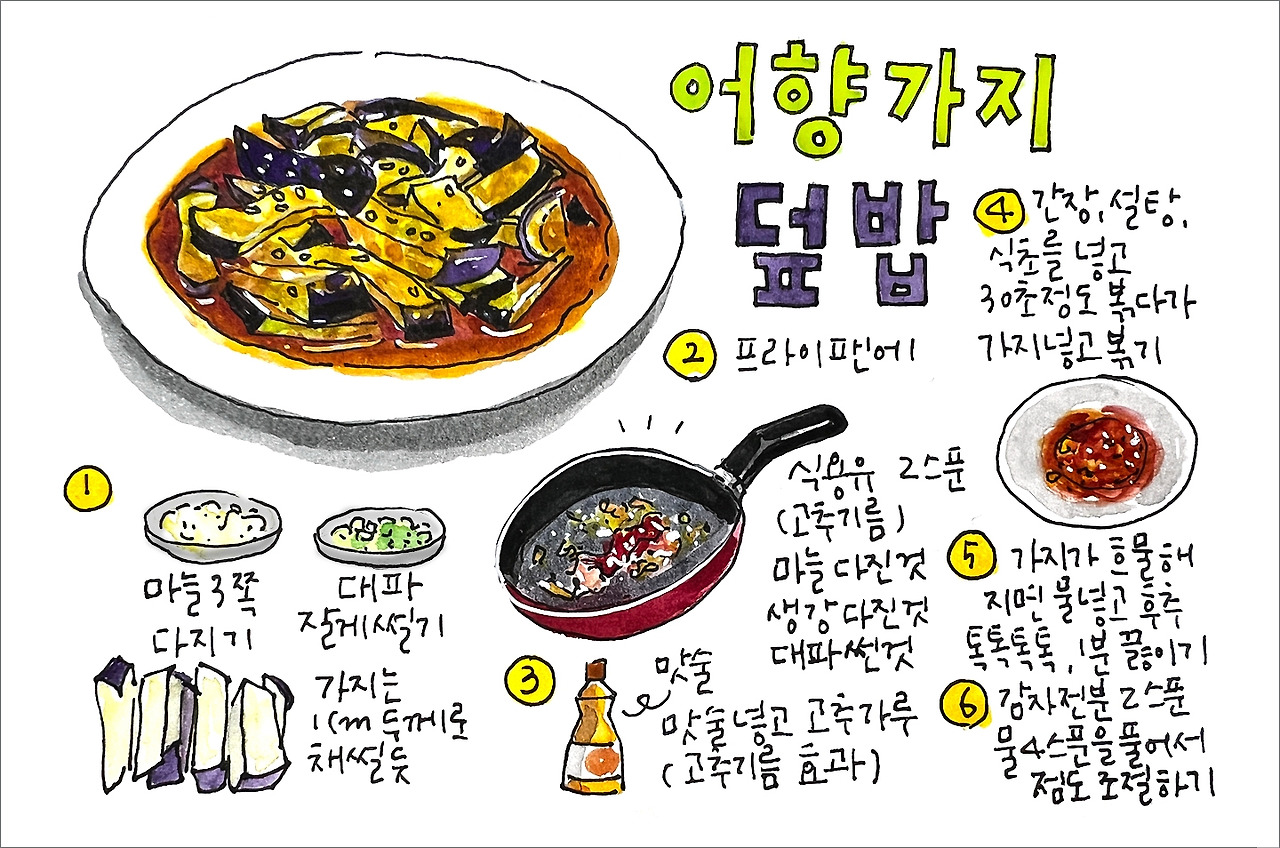 어향가지
덮밥
1
마늘3쪽
다지기
대파
잘게썰기
가지는
1cm 두께로
채썰듯
2 프라이팬에
식용유 2스푼
(고추기름)
마늘 다진것
생강 다진것
대파 썬것
3
맛술
맛술넣고 고추가루
(고추기름 효과)
4 간장, 설탕,
식초를 넣고
30초정도 볶다가
가지넣고볶기
5 가지가 흐물해
지면 물넣고 후추
톡톡톡톡, 1분 끓이기
6 감자전분 2스푼
물4스푼을풀어서
점도조절하기